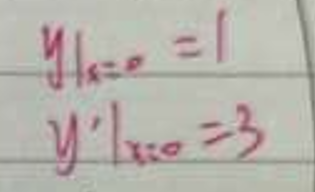 y|ₓ₌₀ = 1
y'|ₓ₌₀ = 3